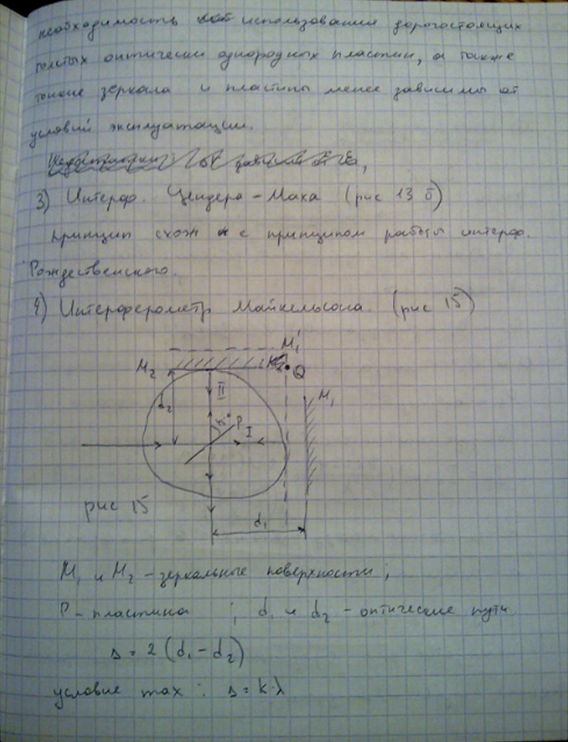 необходимость использования дорогостоящих
толстых оптически однородных пластин, а также
тонкие зеркала и пластины менее зависимы от
условий эксплуатации.
3) Интерф. Цендера-Маха (рис 13 б)
принцип схож с принципом работы интерф.
Рождественского.
4) Интерферометр Майкельсона. (рис 15)
M₁'
M₂
Q
M₁
d₂
II
P
I
рис 15
d₁
M₁ и M₂ - зеркальные поверхности;
P - пластина ; d₁ и d₂ - оптические пути.
Δ = 2 (d₁ - d₂)
условие max : Δ = k·λ